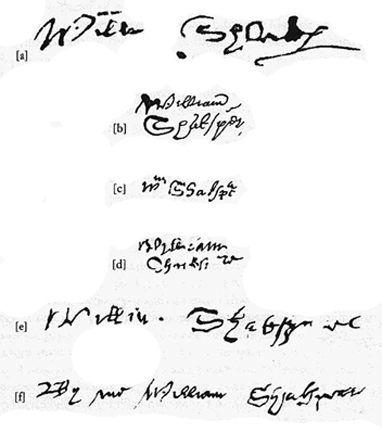 [a] Willm Shakp
William
[b] Shakspēr
[c] Wm Shakspē
William
[d]
[e] Willm Shakspere
[f] By me William Shakspeare